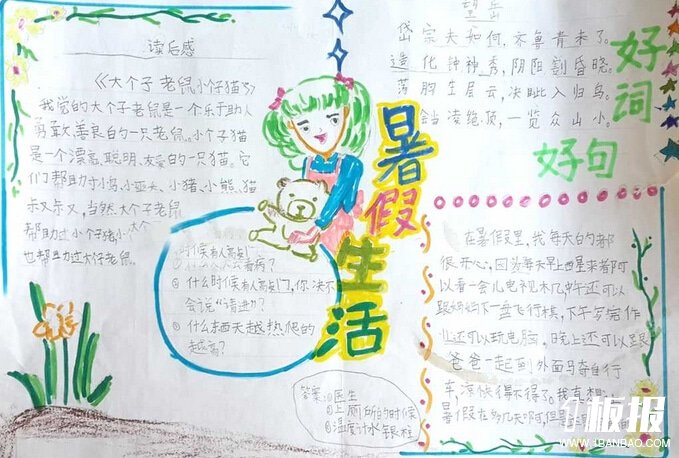 读后感
《大个子老鼠小个子猫5》
我觉的大个子老鼠是一个乐于助人
勇敢善良的一只老鼠。小个子猫
是一个漂亮、聪明、友爱的一只猫。它
们帮助过小鸟、小亚头、小猪、小熊、猫
叔叔，当然大个子老鼠
帮助过小个子猫，小个
也帮助过大个子老鼠。
时候有人敲门
病？
②什么时候有人敲门，你决不
会说“请进”？
③什么东西天越热爬的
越高？
答案：①医生
②上厕所的时候
③温度计水银柱
暑假生活
望岳
岱宗夫如何，齐鲁青未了。
造化钟神秀，阴阳割昏晓。
荡胸生层云，决眦入归鸟。
会当凌绝顶，一览众山小。
好词
好句
在暑假里，我每天白都
很开心，因为每天早上
以看一会儿电视，中午还可以
跟妈妈下一盘飞行棋，下午写完作
业还可以玩电脑，晚上还可以跟
爸爸一起到外面骑自行
车，凉快得不得了。我真想
暑假在多几天啊，但
板报
WWW.1BANBAO.COM